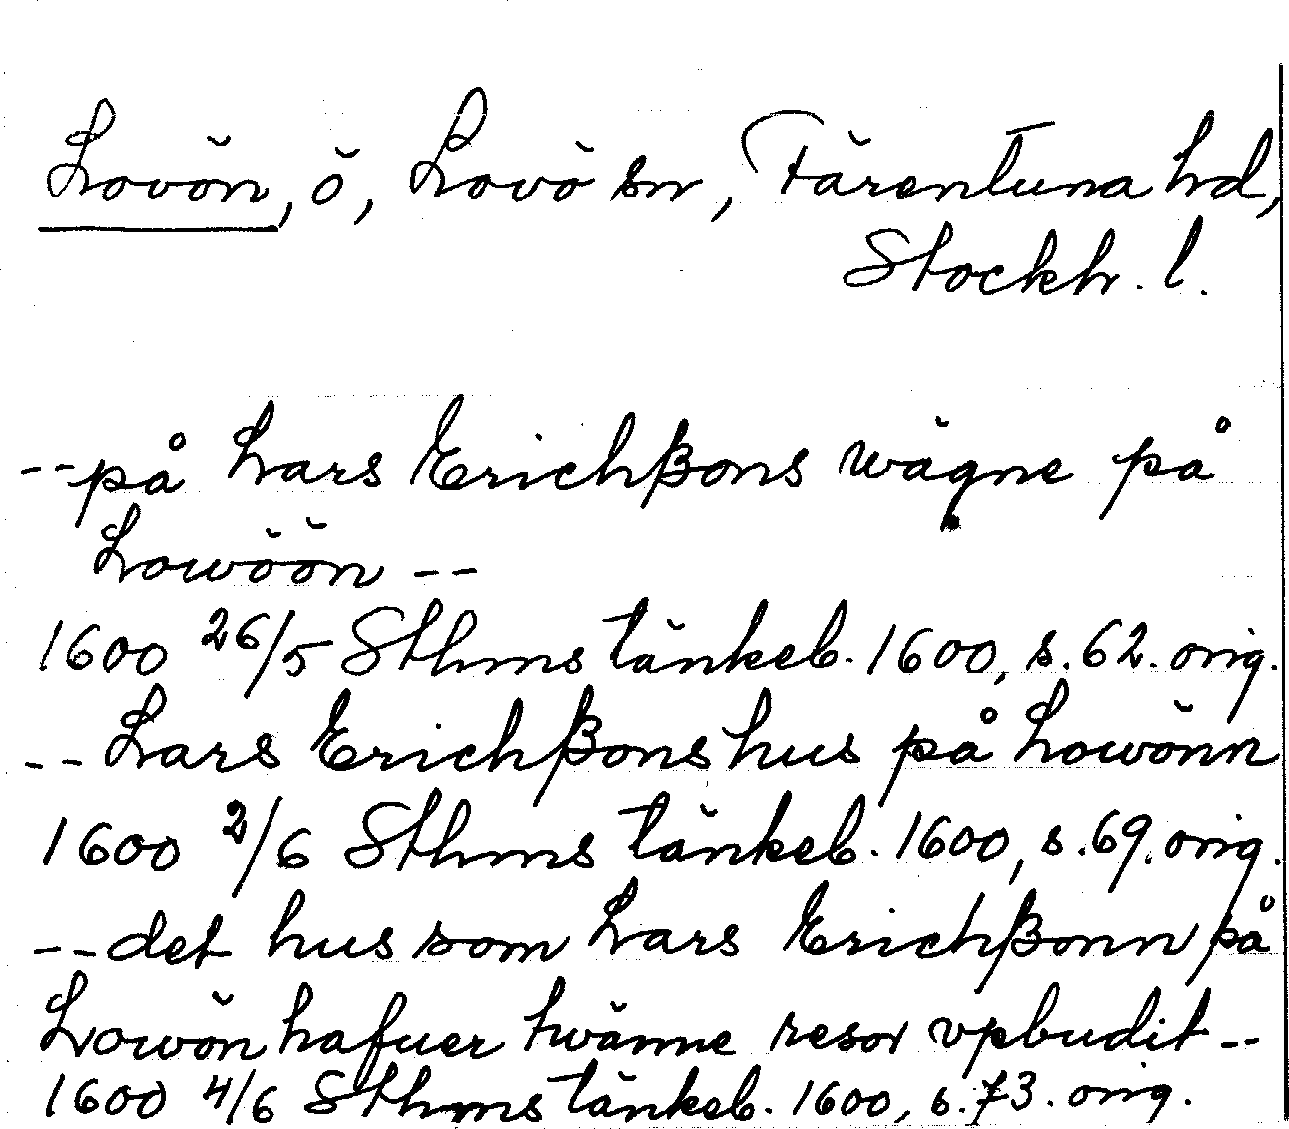 Lovön, ö, Lovö sn, Färentuna hd,
Stockh. l.
--på Lars Erichßons wägne på
Lowöön --
1600 26/5 Sthms tänkeb. 1600, s. 62. orig.
-- Lars Erichßons hus på Lowönn
1600 2/6 Sthms tänkeb. 1600, s. 69. orig.
--det hus som Lars Erichßonn på
Lowön hafuer twänne resor vpbudit --
1600 4/6 Sthms tänkeb. 1600, s. 73. orig.